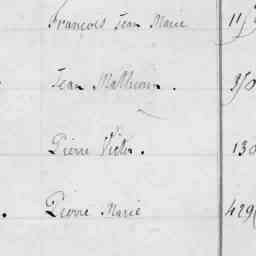 François Jean Marie 11
Jean Mathurin .
Pierre Victor . 130
. Pierre Marie 429